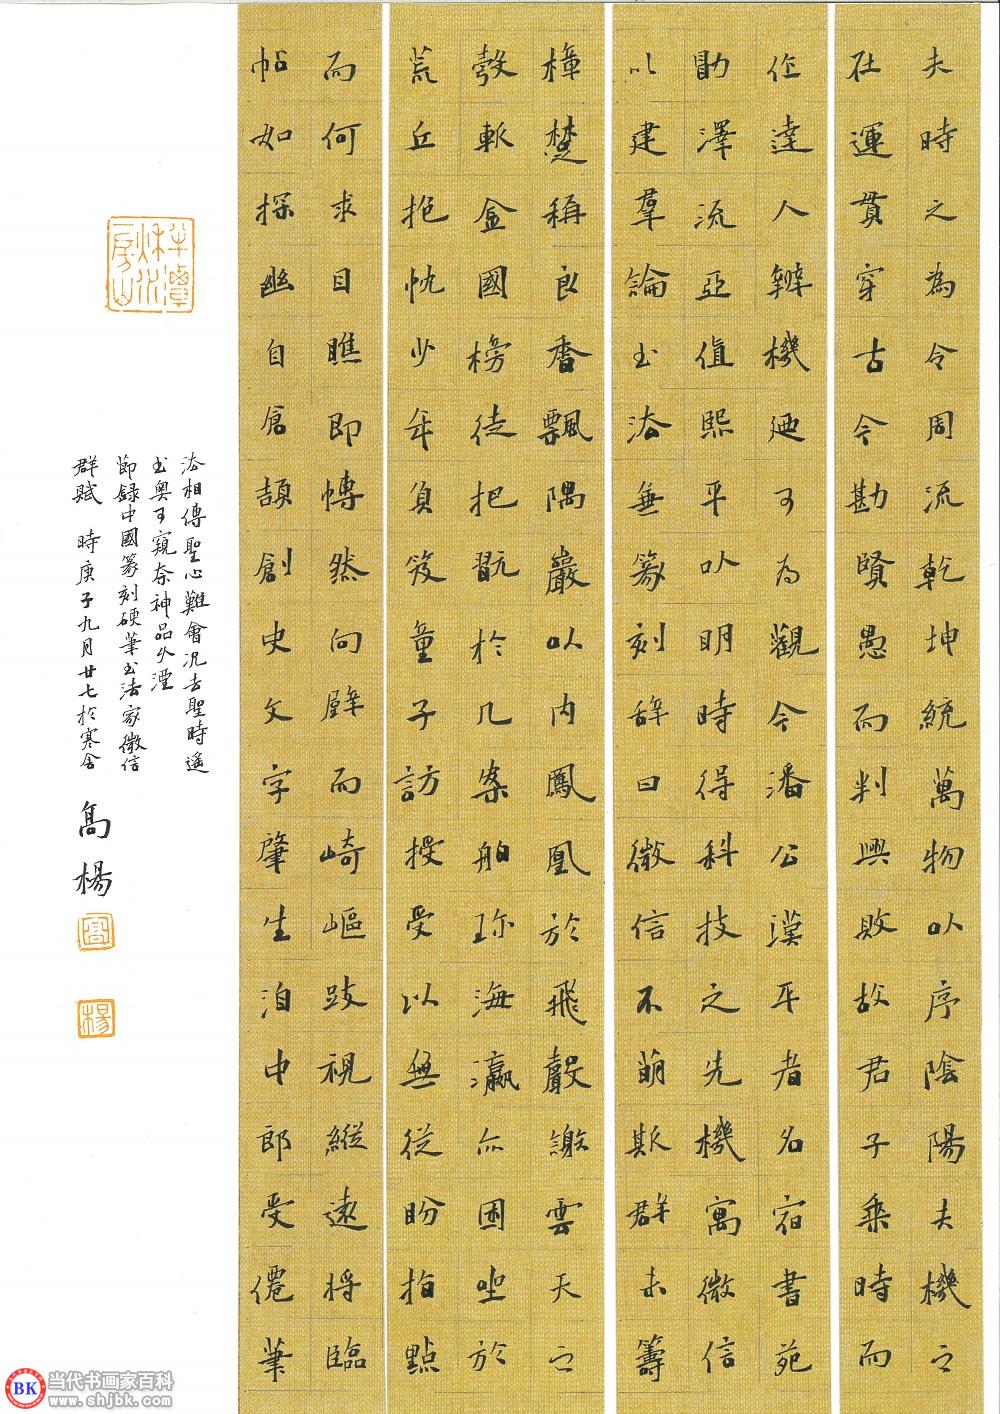 夫時之為令周流乾坤統萬物以序陰陽夫機之
在運貫穿古今勘賢愚而判興敗故君子乘時而
作達人辨機廼可為觀今潘公漢平者名宿書苑
勛澤流亞值熙平以明時得科技之先機寓微信
以建羣論書法無篆刻辞曰微信不萌斯群未籌
樟楚稱良香飄隅巖以内鳳凰於飛聲謝雲天之
斬金國榜徒把翫於几案舶珎海瀛亦困坐於
荒丘抱忱少年負笈童子訪授受以無從盼指點
而何求目瞧即轉然向壁而崎嶇跂視縱遠将臨
帖如探幽自倉頡創史文字肇生洎中郎受僊筆
法相傳聖心難會况去聖時遙
書奥可窺奈神品久湮
節錄中國篆刻硬筆書法家微信
群賦 時庚子九月廿七於寒舍
高楊
高
楊
BK 当代书画家百科
www.shjbk.com